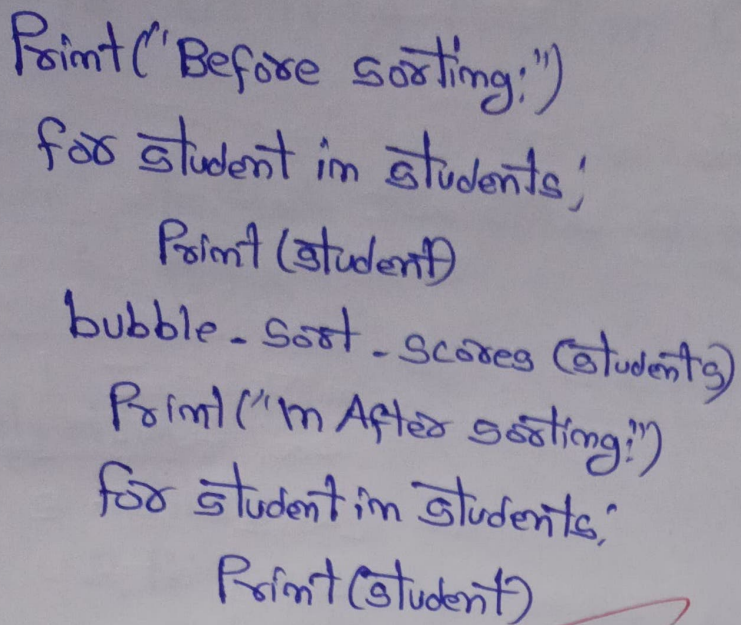 Print("Before sorting:")
for student in students:
Print (student)
bubble-sort-scores (students)
Print ("\n After sorting:")
for student in students:
Print (student)